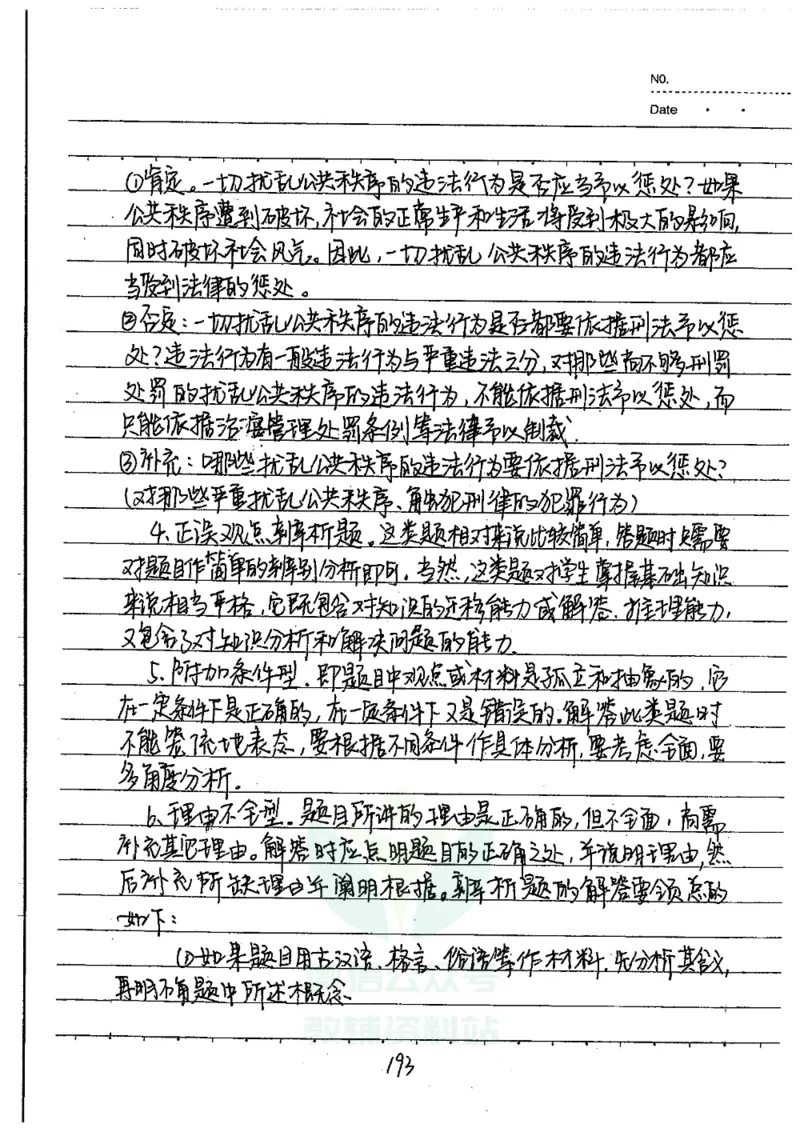 NO.
Date
①肯定。一切扰乱公共秩序的违法行为是否应当予以惩处?如果
公共秩序遭到破坏,社会的正常生产和生活将受到极大的影响,
同时破坏社会风气。因此,一切扰乱公共秩序的违法行为都应
当受到法律的惩处。
②否定:一切扰乱公共秩序的违法行为是否都要依据刑法予以惩
处?违法行为有一般违法行为与严重违法之分,对那些尚不够刑罚
处罚的扰乱公共秩序的违法行为,不能依据刑法予以惩处,而
只能依据治安管理处罚条例等法律予以制裁.
③补充:哪些扰乱公共秩序的违法行为要依据刑法予以惩处?
(对那些严重扰乱公共秩序、触犯刑律的犯罪行为)
4.正误观点辨析题。这类题相对来说比较简单,答题时只需要
对题目作简单的辨别分析即可。当然,这类题对学生掌握基础知识
来说相当严格,它既包含对知识的迁移能力或解答、推理能力,
又包含了对知识分析和解决问题的能力.
5.附加条件型.即题目中观点或材料是孤立和抽象的,它
在一定条件下是正确的,在一定条件下又是错误的。解答此类题时
不能笼统地表态,要根据不同条件作具体分析,要考虑全面,要
多角度分析.
6.理由不全型.题目所讲的理由是正确的,但不全面,尚需
补充其它理由。解答时应点明题目的正确之处,并说明理由,然
后补充所缺理由并阐明根据。辨析题的解答要领总的
如下:
(1)如果题目用古汉语、格言、俗语等作材料.先分析其含义,
再明确题中所述概念.
微信公众号
教辅资料站
193